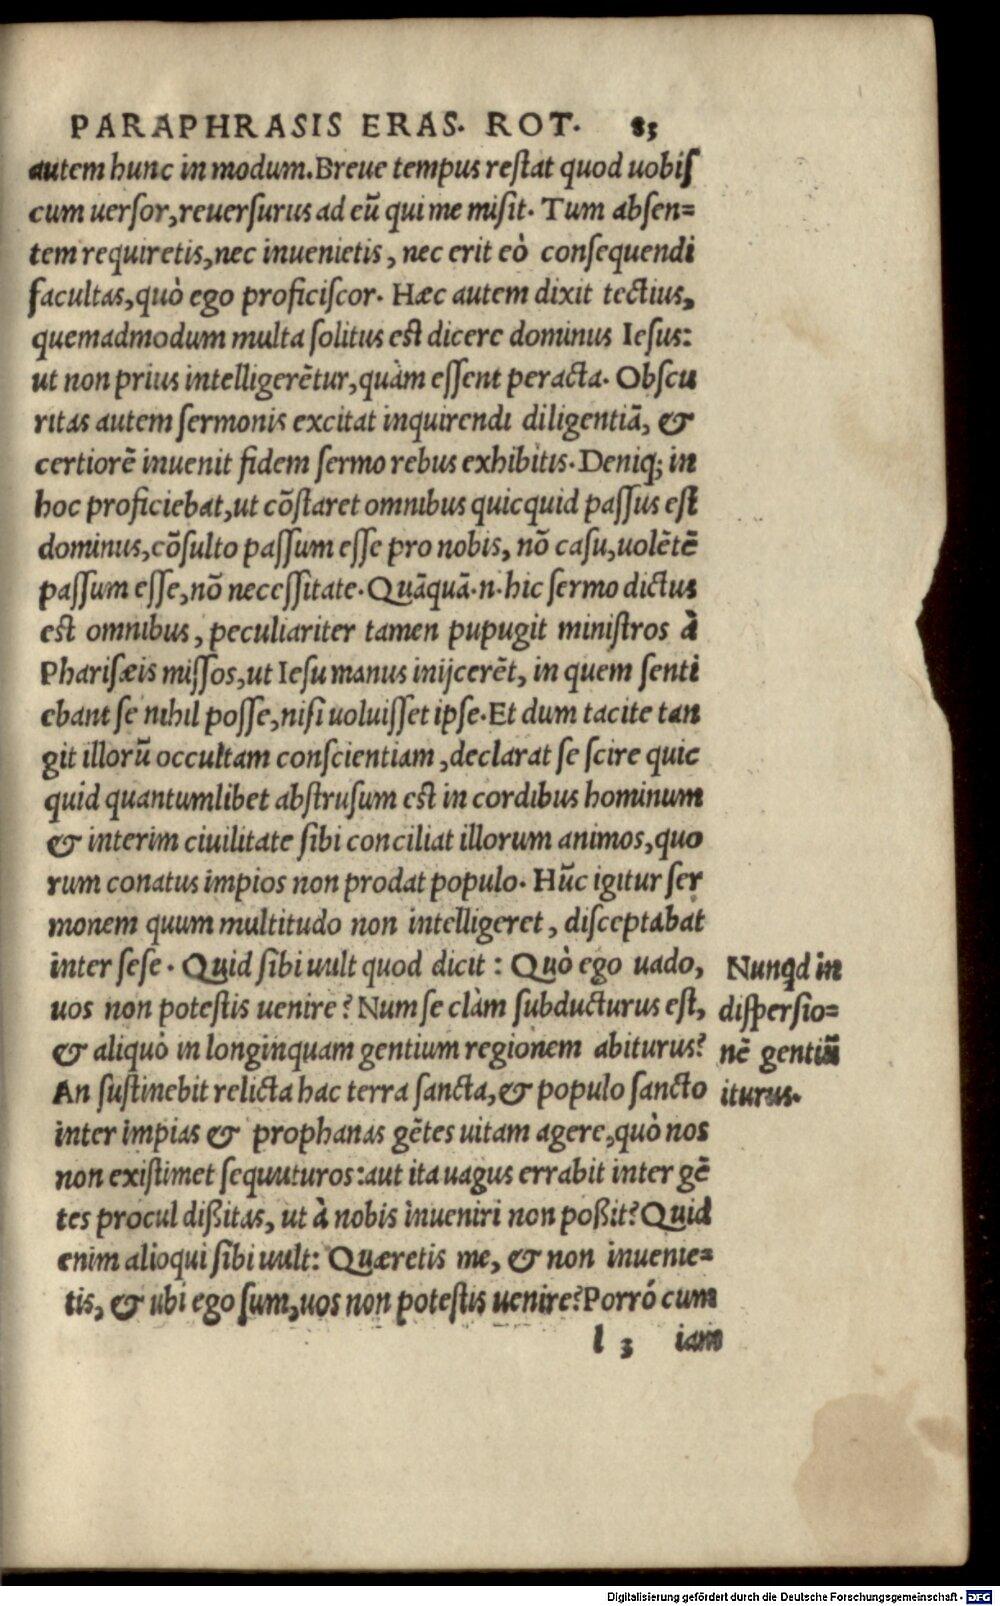 PARAPHRASIS ERAS. ROT. 83
autem hunc in modum. Breue tempus restat quod uobis
cum uersor, reuersurus ad eũ qui me misit. Tum absen=
tem requiretis, nec inuenietis, nec erit eò consequendi
facultas, quò ego proficiscor. Hæc autem dixit tectius,
quemadmodum multa solitus est dicere dominus Iesus:
ut non prius intelligerẽtur, quàm essent peracta. Obscu
ritas autem sermonis excitat inquirendi diligentiã, &
certiorẽ inuenit fidem sermo rebus exhibitis. Deniq; in
hoc proficiebat, ut cõstaret omnibus quicquid passus est
dominus, cõsulto passum esse pro nobis, nõ casu, uolẽtẽ
passum esse, nõ necessitate. Quãquã.n.hic sermo dictus
est omnibus, peculiariter tamen pupugit ministros à
Pharisæis missos, ut Iesu manus inijcerẽt, in quem senti
ebant se nihil posse, nisi uoluisset ipse. Et dum tacite tan
git illorũ occultam conscientiam, declarat se scire quic
quid quantumlibet abstrusum est in cordibus hominum
& interim ciuilitate sibi conciliat illorum animos, quo
rum conatus impios non prodat populo. Hũc igitur ser
monem quum multitudo non intelligeret, disceptabat
inter sese. Quid sibi uult quod dicit: Quò ego uado,
uos non potestis uenire? Num se clàm subducturus est,
& aliquò in longinquam gentium regionem abiturus?
An sustinebit relicta hac terra sancta, & populo sancto
inter impias & prophanas gẽtes uitam agere, quò nos
non existimet sequuturos: aut ita uagus errabit inter gẽ
tes procul dißitas, ut à nobis inueniri non poßit? Quid
enim alioqui sibi uult: Quæretis me, & non inuenie=
tis, & ubi ego sum, uos non potestis uenire? Porró cum
l 3 iam
Nunqd in
dispersio=
nẽ gentiũ
iturus.
Digitalisierung gefördert durch die Deutsche Forschungsgemeinschaft - DFG